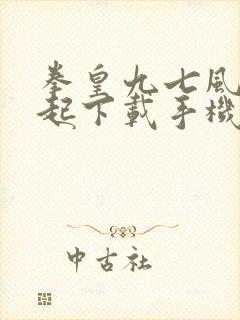 拳皇九七風
起下載手機
中古社